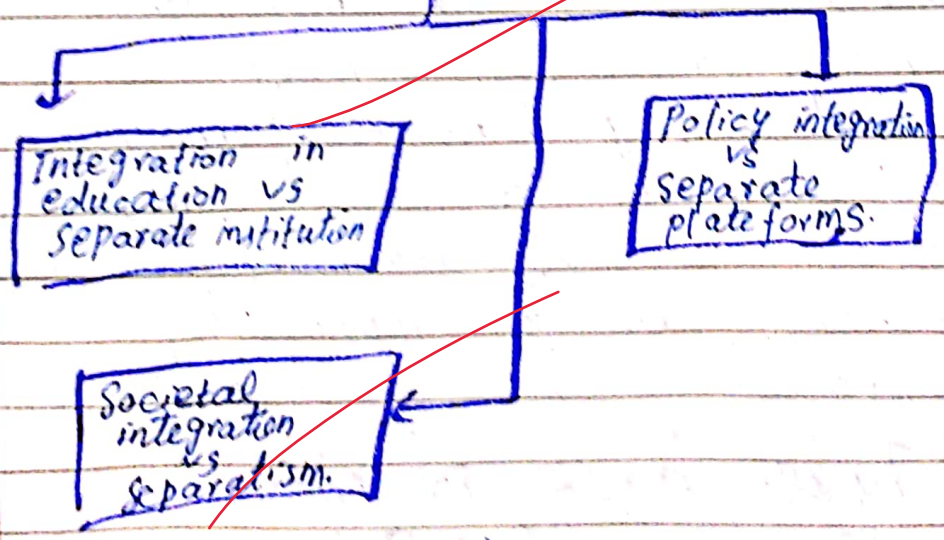 Integration in
education vs
separate institution
Policy integration
vs
separate
plateforms.
Societal
integration
vs
separatism.